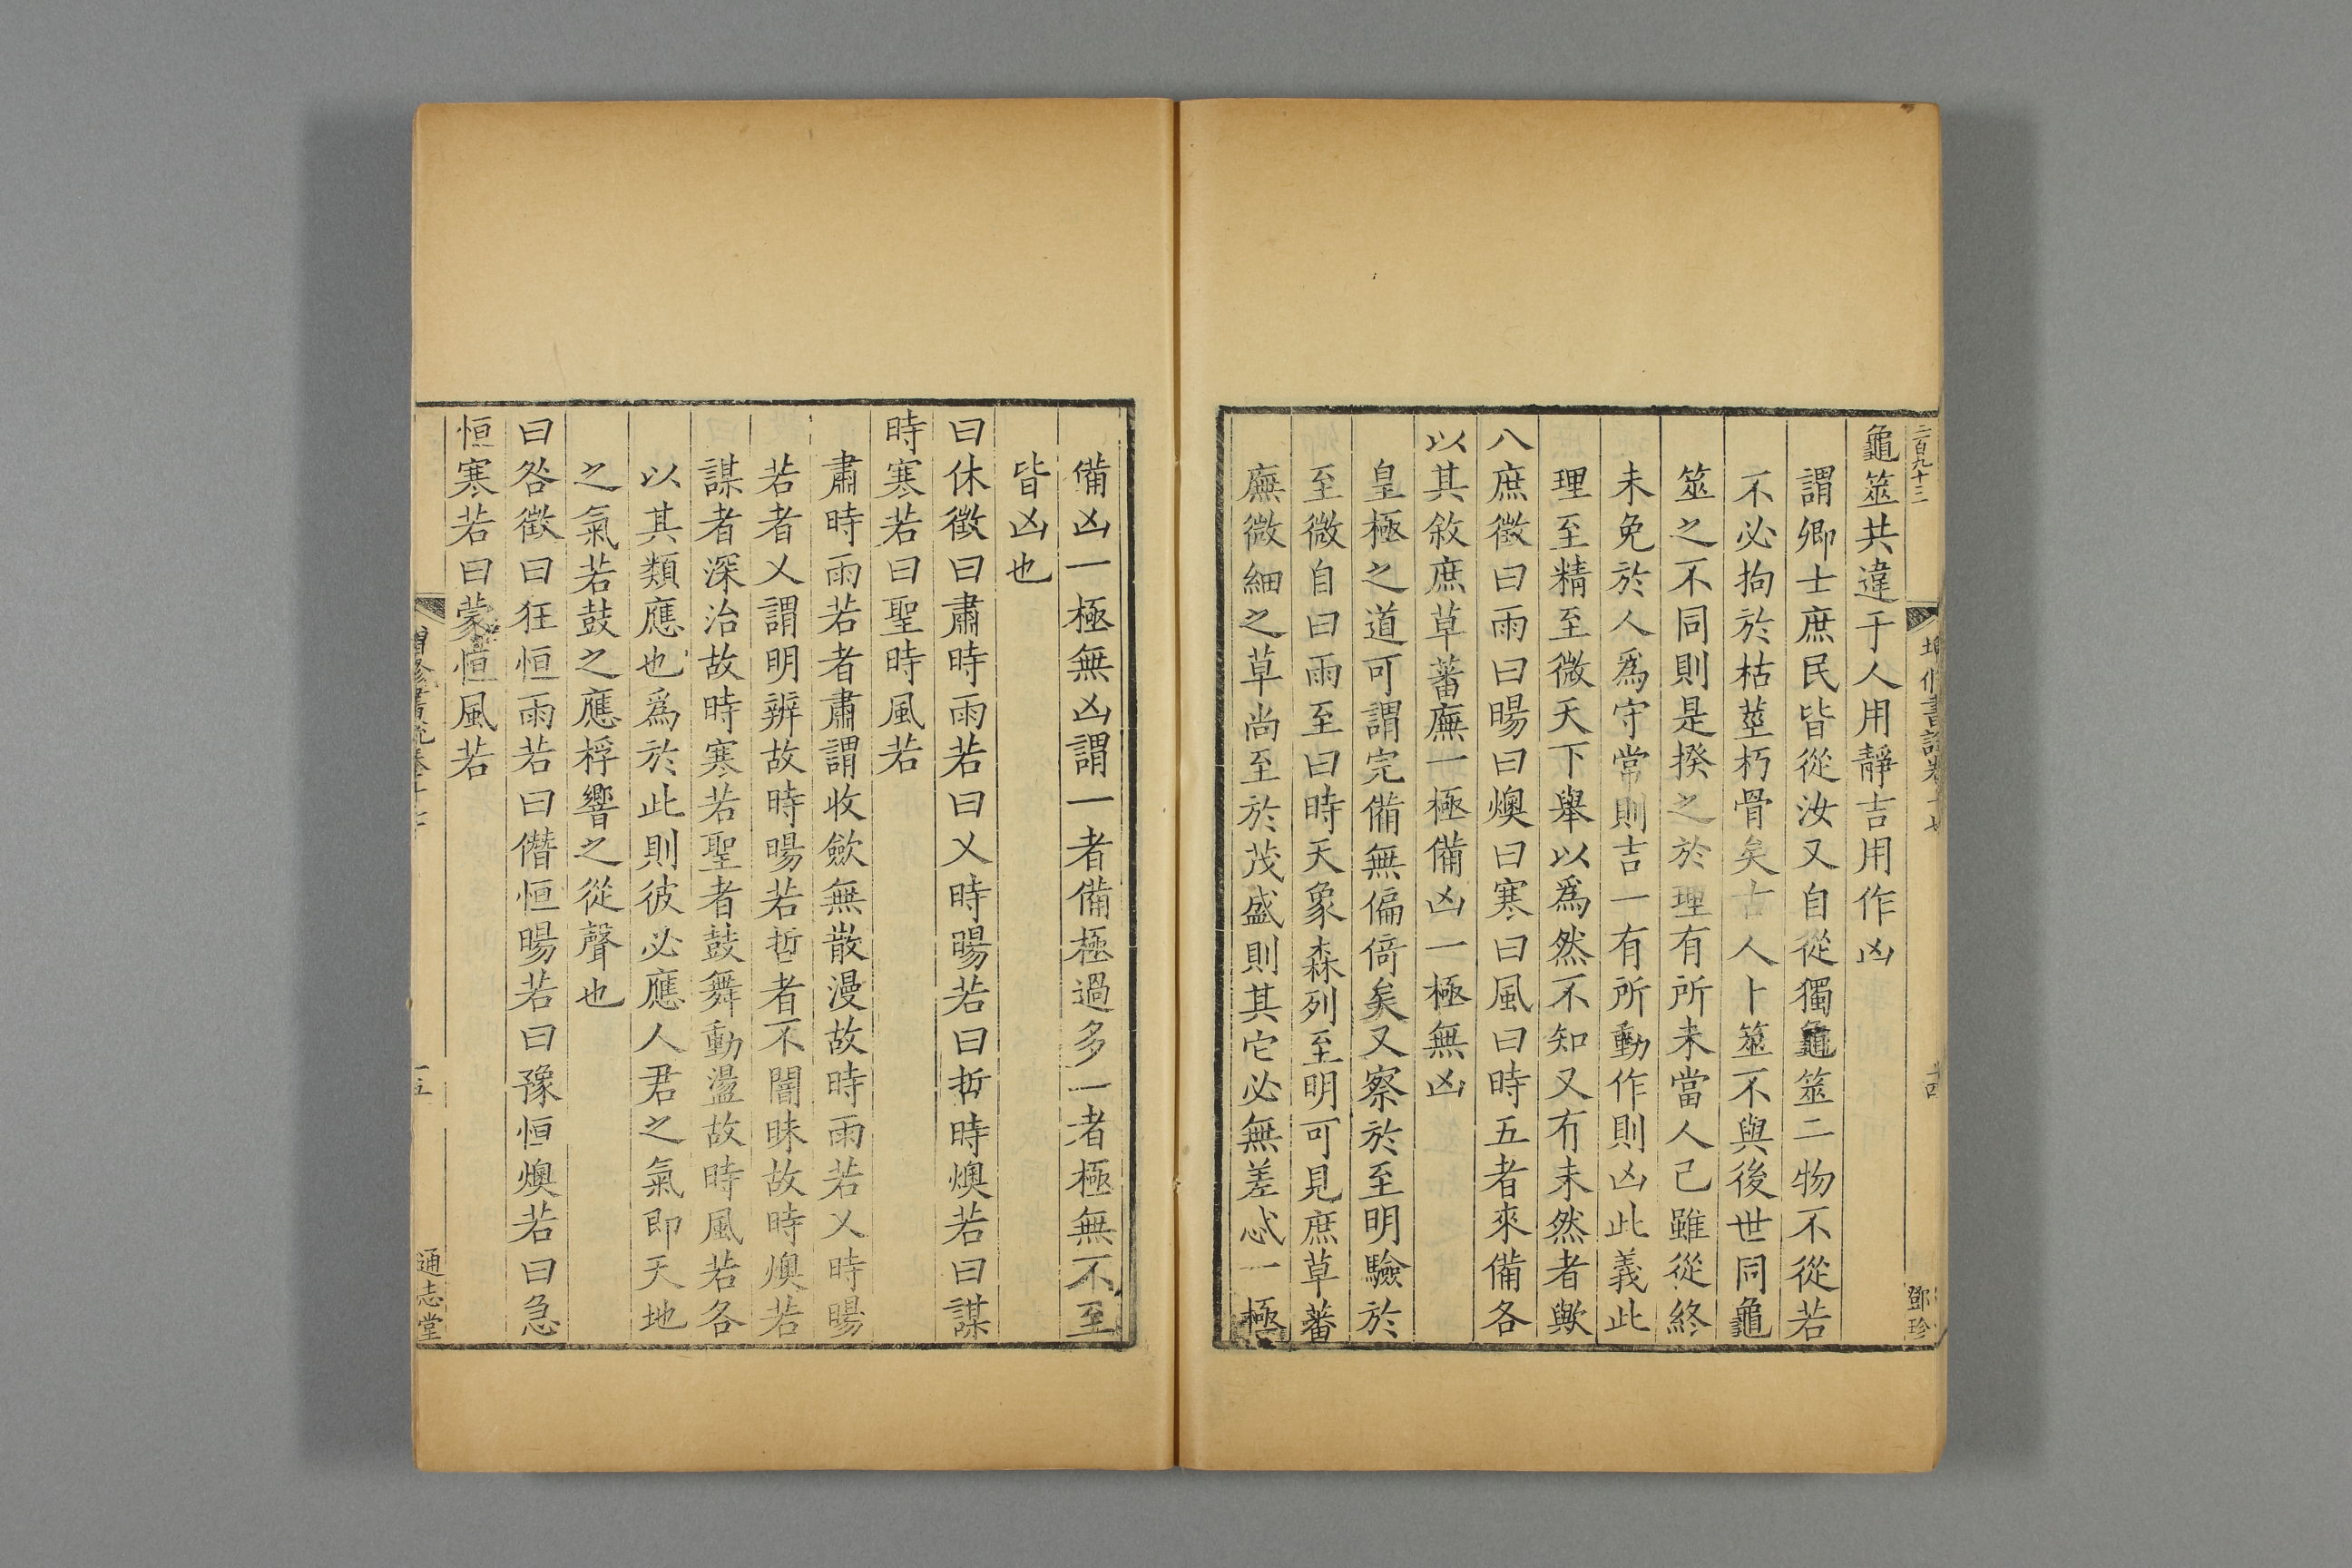 二百九十三
龜筮共違于人用靜吉用作凶
謂卿士庶民皆從汝又自從獨龜筮二物不從若
不必拘於枯莖朽骨矣古人卜筮不與後世同龜
筮之不同則是揆之於理有所未當人己雖從終
未免於人爲守常則吉一有所動作則凶此義此
理至精至微天下舉以爲然不知又有未然者歟
八庶徵曰雨曰暘曰燠曰寒曰風曰時五者來備各
以其敘庶草蕃廡一極備凶一極無凶
皇極之道可謂完備無偏倚矣又察於至明驗於
至微自曰雨至曰時天象森列至明可見庶草蕃
廡微細之草尚至於茂盛則其它必無差忒一極
備凶一極無凶謂一者備極過多一者極無不至
皆凶也
曰休徵曰肅時雨若曰乂時暘若曰哲時燠若曰謀
時寒若曰聖時風若
肅時雨若者肅謂收斂無散漫故時雨若乂時暘
若者乂謂明辨故時暘若哲者不闇昧故時燠若
謀者深治故時寒若聖者鼓舞動盪故時風若各
以其類應也爲於此則彼必應人君之氣即天地
之氣若鼓之應桴響之從聲也
曰咎徵曰狂恒雨若曰僭恒暘若曰豫恒燠若曰急
恒寒若曰蒙恒風若
通志堂
鄧珍